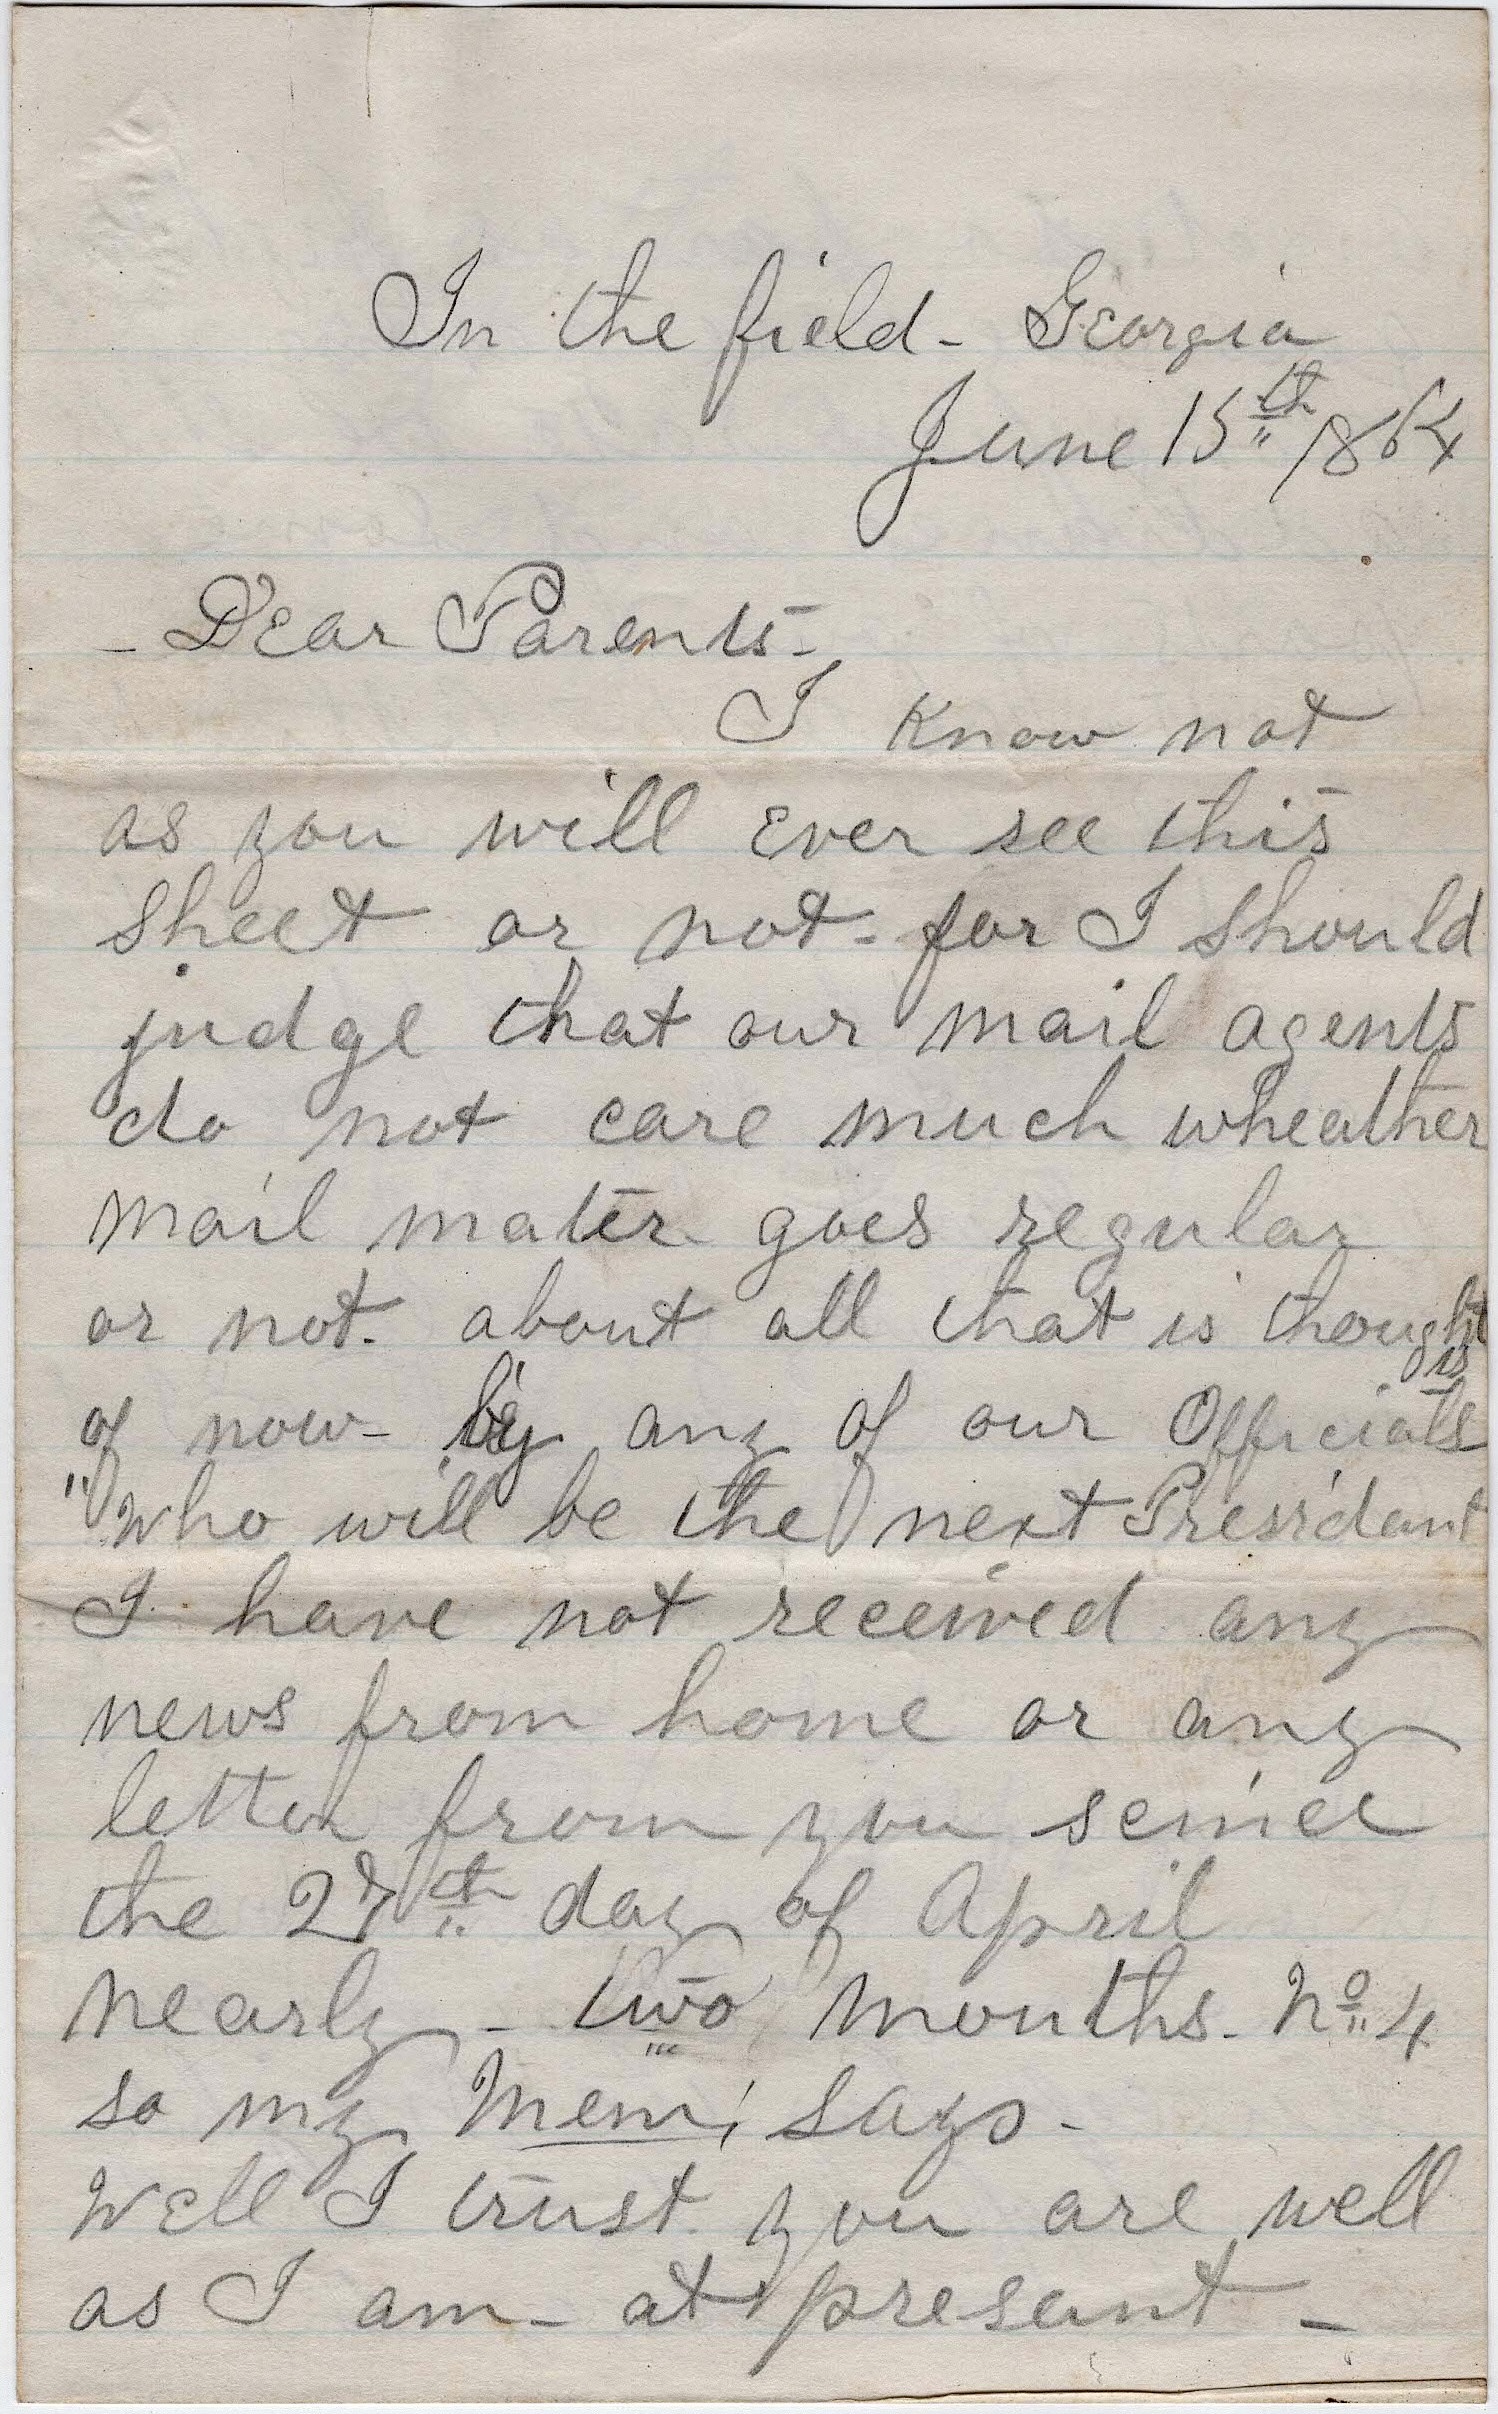 In the field - Georgia
June 15th 1864
- Dear Parents -
I know not
as you will Ever see this
sheet or not - for I should
judge that our mail agents
do not care much wheather
mail mater goes regular
or not. about all that is thought
of now - by any of our Officials is
"Who will be the next Presidant
I have not received any
news from home or any
letter from you seince
the 27th day of April
nearly - two months. No 4
so my Mem, says -
Well I trust you are well
as I am - at presant -